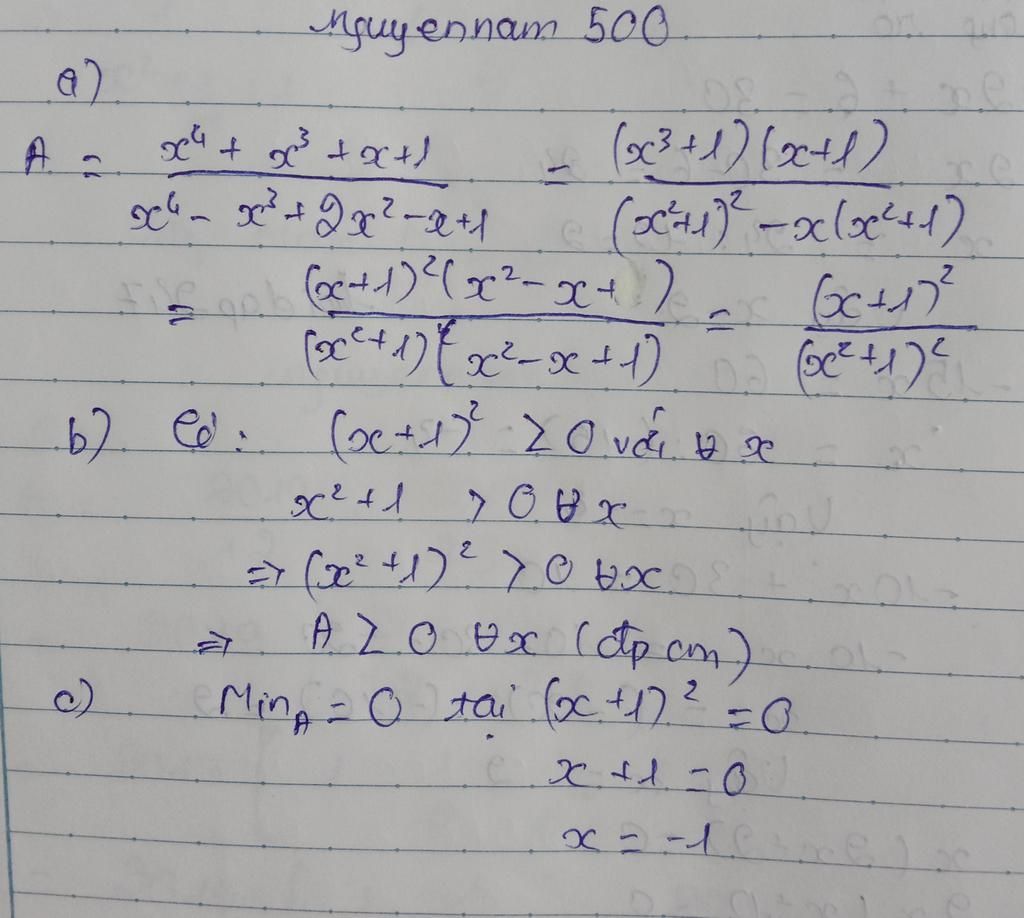 Nguyennam 500
a)
A = (x⁴ + x³ + x + 1)/(x⁴ - x³ + 2x² - x + 1) = ((x³ + 1)(x + 1))/((x² + 1)² - x(x² + 1))
= ((x + 1)²(x² - x + ))/((x² + 1)(x² - x + 1)) = (x + 1)²/(x² + 1)²
b) Có : (x + 1)² ≥ 0 với ∀ x
x² + 1 > 0 ∀ x
⇒ (x² + 1)² > 0 ∀x
⇒ A ≥ 0 ∀x (đpcm)
c) Min_A = 0 tại (x + 1)² = 0
x + 1 = 0
x = -1